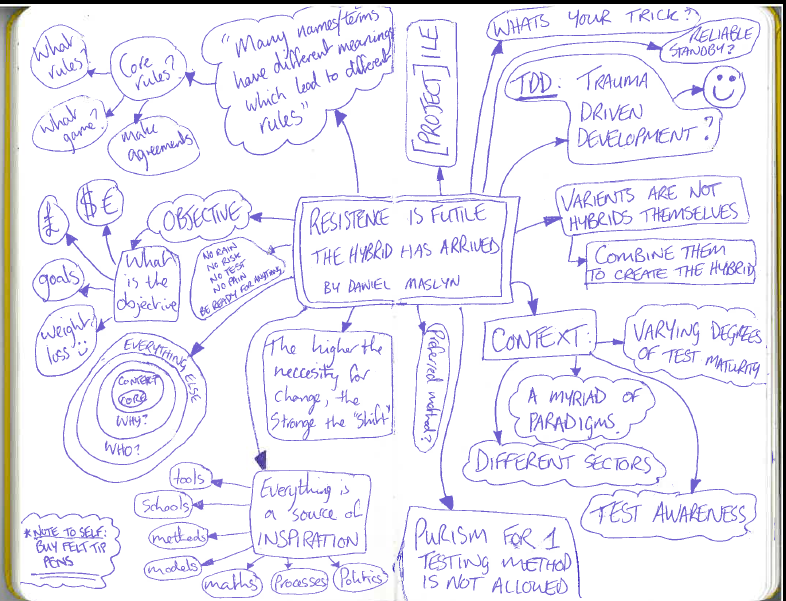 What
rules?
Core
rules?
What
game?
make
agreements
"Many names/terms
have different meanings
which lead to different
rules"
[PROJECT]ILE
WHATS YOUR TRICK?
RELIABLE
STANDBY?
TDD: TRAUMA
DRIVEN
DEVELOPMENT?
£
$€
OBJECTIVE
What
is the
objective
goals
weight
loss
NO RAIN
NO RISK
NO TEST
NO PAIN
BE READY FOR ANYTHING
RESISTENCE IS FUTILE
THE HYBRID HAS ARRIVED
BY DANIEL MASLYN
VARIENTS ARE NOT
HYBRIDS THEMSELVES
COMBINE THEM
TO CREATE THE HYBRID
EVERYTHING ELSE
CONTEXT
CORE
WHY?
WHO?
The higher the
neccesity for
change, the
stronge the "shift"
Preferred method?
CONTEXT:
VARYING DEGREES
OF TEST MATURITY
A MYRIAD OF
PARADIGMS
DIFFERENT SECTORS
TEST AWARENESS
Everything is
a source of
INSPIRATION
tools
Schools
methods
models
maths
Processes
Politics
PURISM FOR 1
TESTING METHOD
IS NOT ALLOWED
*NOTE TO SELF:
BUY FELT TIP
PENS